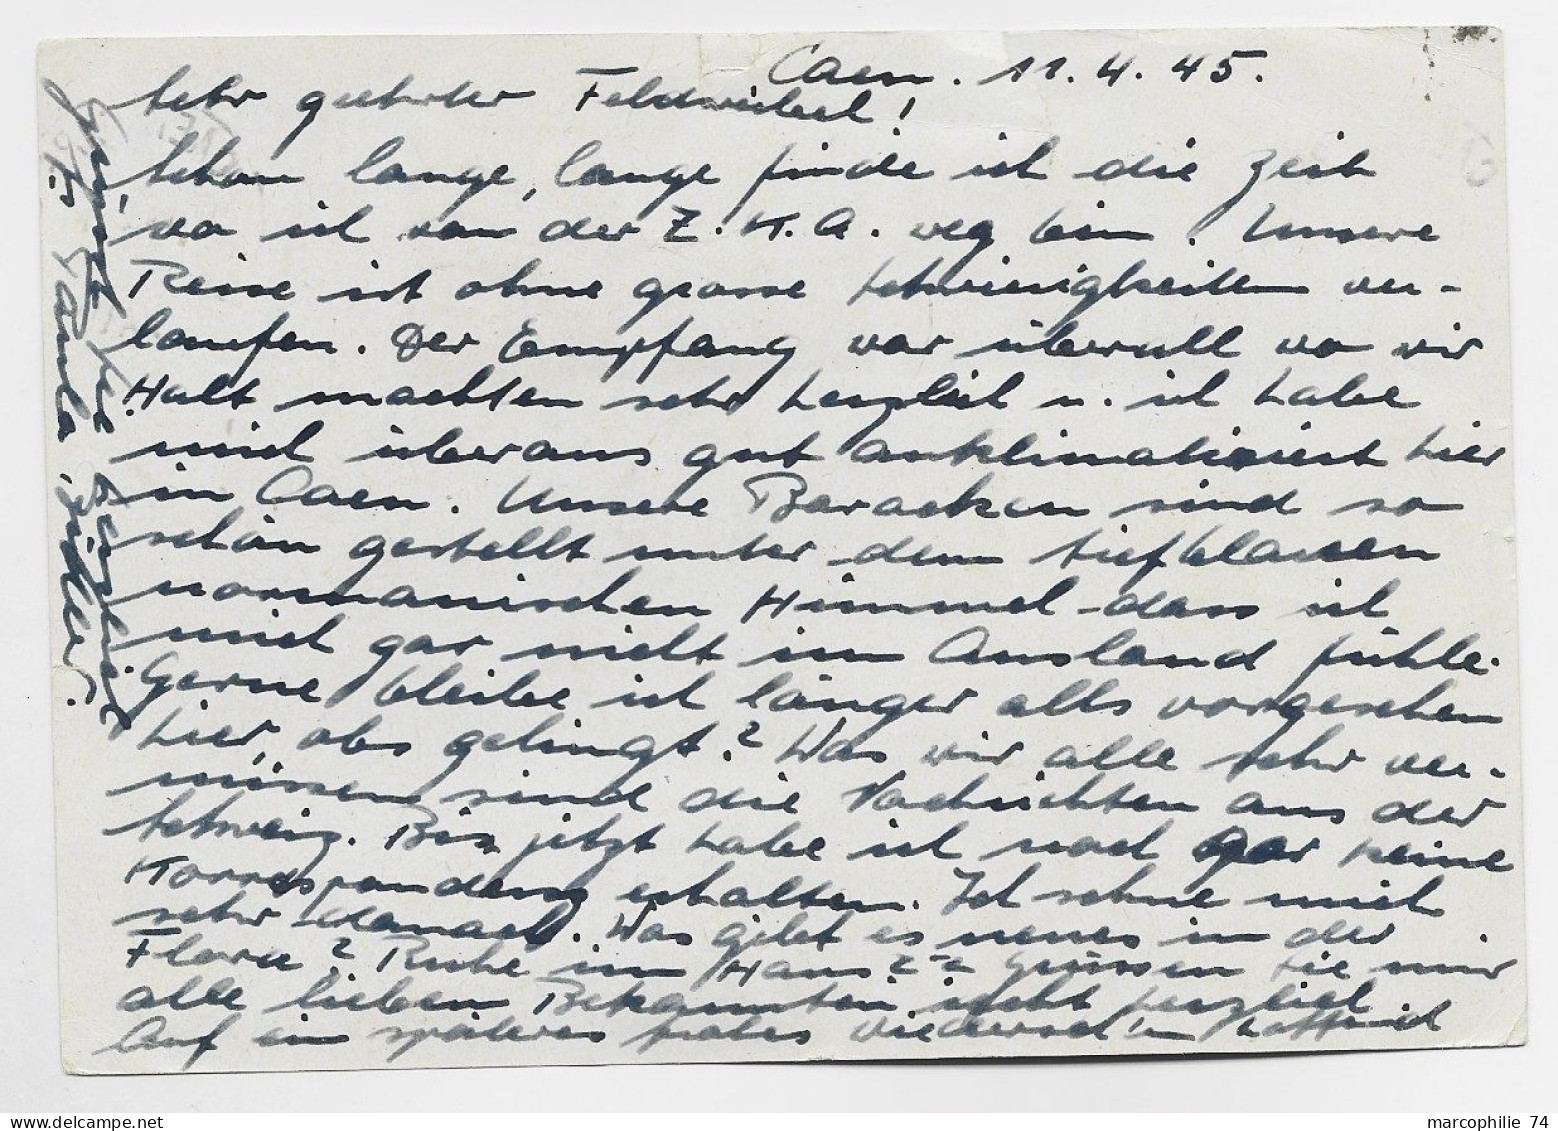 Caen. 11. 4. 45.
Sehr geehrter Feldweibel!
Schon lange, lange finde ich die Zeit
wo ich von der Z.K.A. weg bin. Unsere
Reise ist ohne grosse Schwierigkeiten ver-
laufen. Der Empfang war überall wo wir
Halt machten sehr herzlich u. ich habe
mich überaus gut anklimatisiert hier
in Caen. Unsere Baracken sind so
schön gestellt unter dem tiefblauen
normanischen Himmel - dass ich
mich gar nicht im Ausland fühle.
Gerne bleibe ich länger alls vorgesehen
hier, obs gelingt? Was wir alle sehr ver-
missen sind die Nachrichten aus der
Schweiz. Bis jetzt habe ich noch gar keine
Korrespondenz erhalten. Ich sehne mich
sehr danach. Was gibt es neues in der
Flora? Ruhe im Haus?? Grüssen Sie mir
alle lieben Bekannten recht herzlich
Auf ein späteres frohes Wiedersehen hoffend
grüsst Sie herzlich
marcophilie 74